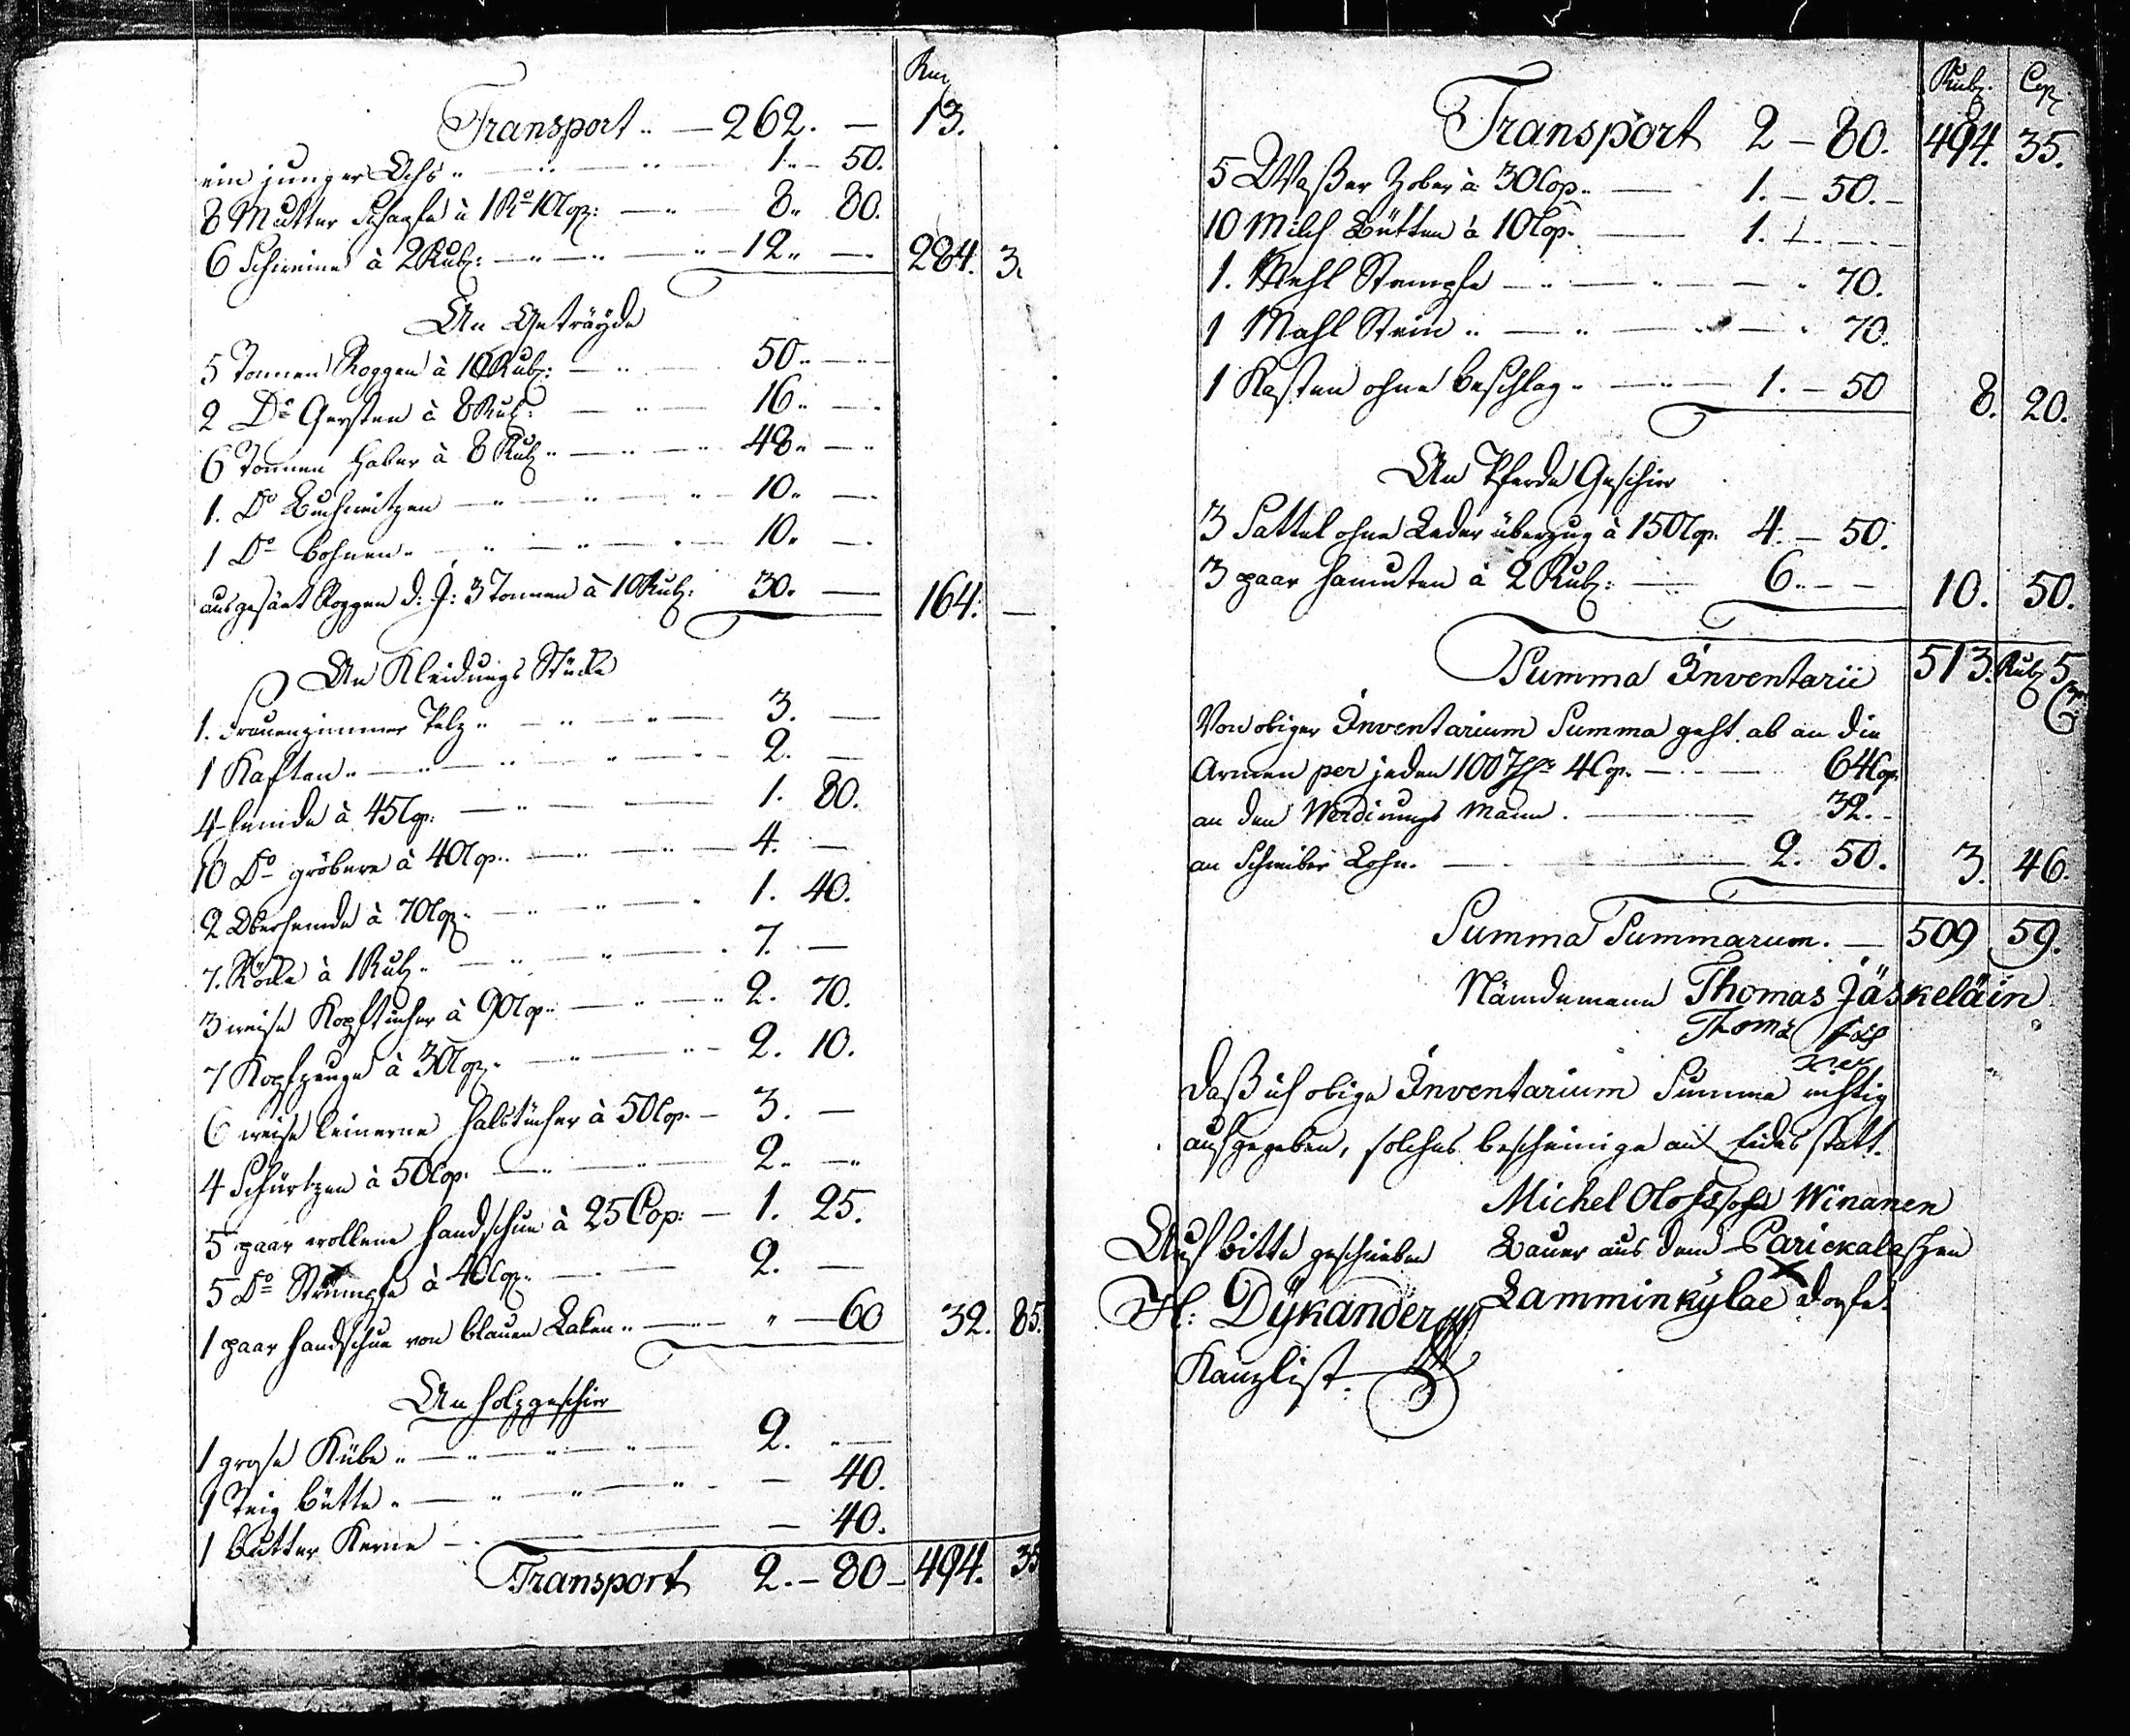 Rub.
Transport .. — 262. — 13.
ein junger Ochs .. — .. — .. — 1. — 50.
8 Mutter Schaafe à 1 Ro 10 Cop: — .. — 8. 80.
6 Schweine à 2 Rub: — .. — .. — 12. — 284. 3.
An Geträyde
5 Tonnen Roggen à 10 Rub: — .. — 50. —
2 Do Gersten à 8 Rub: — .. — 16. —
6 Tonnen Haber à 8 Rub .. — .. — 48. —
1. Do Buchweitzen — .. — .. — 10. —
1 Do Bohnen .. — .. — .. — 10. —
ausgesäet Roggen d: J: 3 Tonnen à 10 Rub: 30. — 164. —
An Kleidungs Stücke
1. Frauenzimmer Pelz .. — .. — .. — 3. —
1 Kaftan .. — .. — .. — 2. —
4 Hemde à 45 Cop: — .. — 1. 80.
10 Do gröbere à 40 Cop. — .. — 4. —
2 Oberhemde à 70 Cop. — .. — 1. 40.
7. Röcke à 1 Rub .. — .. — .. 7. —
3 weise Kopftücher à 90 Cop. — .. — 2. 70.
7 Kopfzeuge à 30 Cop. — .. — 2. 10.
6 weise leinerne Halstücher à 50 Cop. — 3. —
4 Schürtzen à 50 Cop. — .. — 2. —
5 paar wollene Handschue à 25 Cop: — 1. 25.
5 Do Strümpfe à 40 Cop. — .. — 2. —
1 paar Handschue von blauen Laken .. — .. — 60 32. 85.
An Holzgeschirr
1 grose Kübe .. — .. — .. — 2. —
1 Teig Bütte .. — .. — .. — 40.
1 Butter Kerne — .. — 40.
Transport 2. — 80 — 494. 35
Rub. Cop.
Transport 2 — 80. 494. 35.
5 Waßer Zober à 30 Cop .. — 1. — 50. —
10 Milch Bütten à 10 Cop. — 1. —
1. Mehl Stampfe — .. — .. — 70.
1 Mahl Stein .. — .. — .. — 70.
1 Kasten ohne Beschlag .. — .. — 1. — 50 8. 20.
An Pferde Geschirr
3 Sattel ohne Leder überzug à 150 Cop. 4. — 50.
3 paar Hamuten à 2 Rub: — 6. — — 10. 50.
Summa Inventarii 513. Rub 5 Cop
Von obiger Inventarium Summa geht ab an die
Armen per jeden 100 4 Cop. — .. — 64 Cop.
an den Werdirungs Mann. — 32. —
an Schreiber Lohn. — 2. 50. 3. 46.
Summa Summarum. — 509 59.
Nämdemann Thomas Jäskeläin
Thoma
Daß ich obige Inventarium Summa richtig
aufgegeben, solches bescheinige an Eides statt.
Michel Olofssohn Winanen
Auf bitte geschrieben Bauer aus dem Parickalaschen
H: Dÿkander Lamminkÿlae dorfe.
Kanzlist.